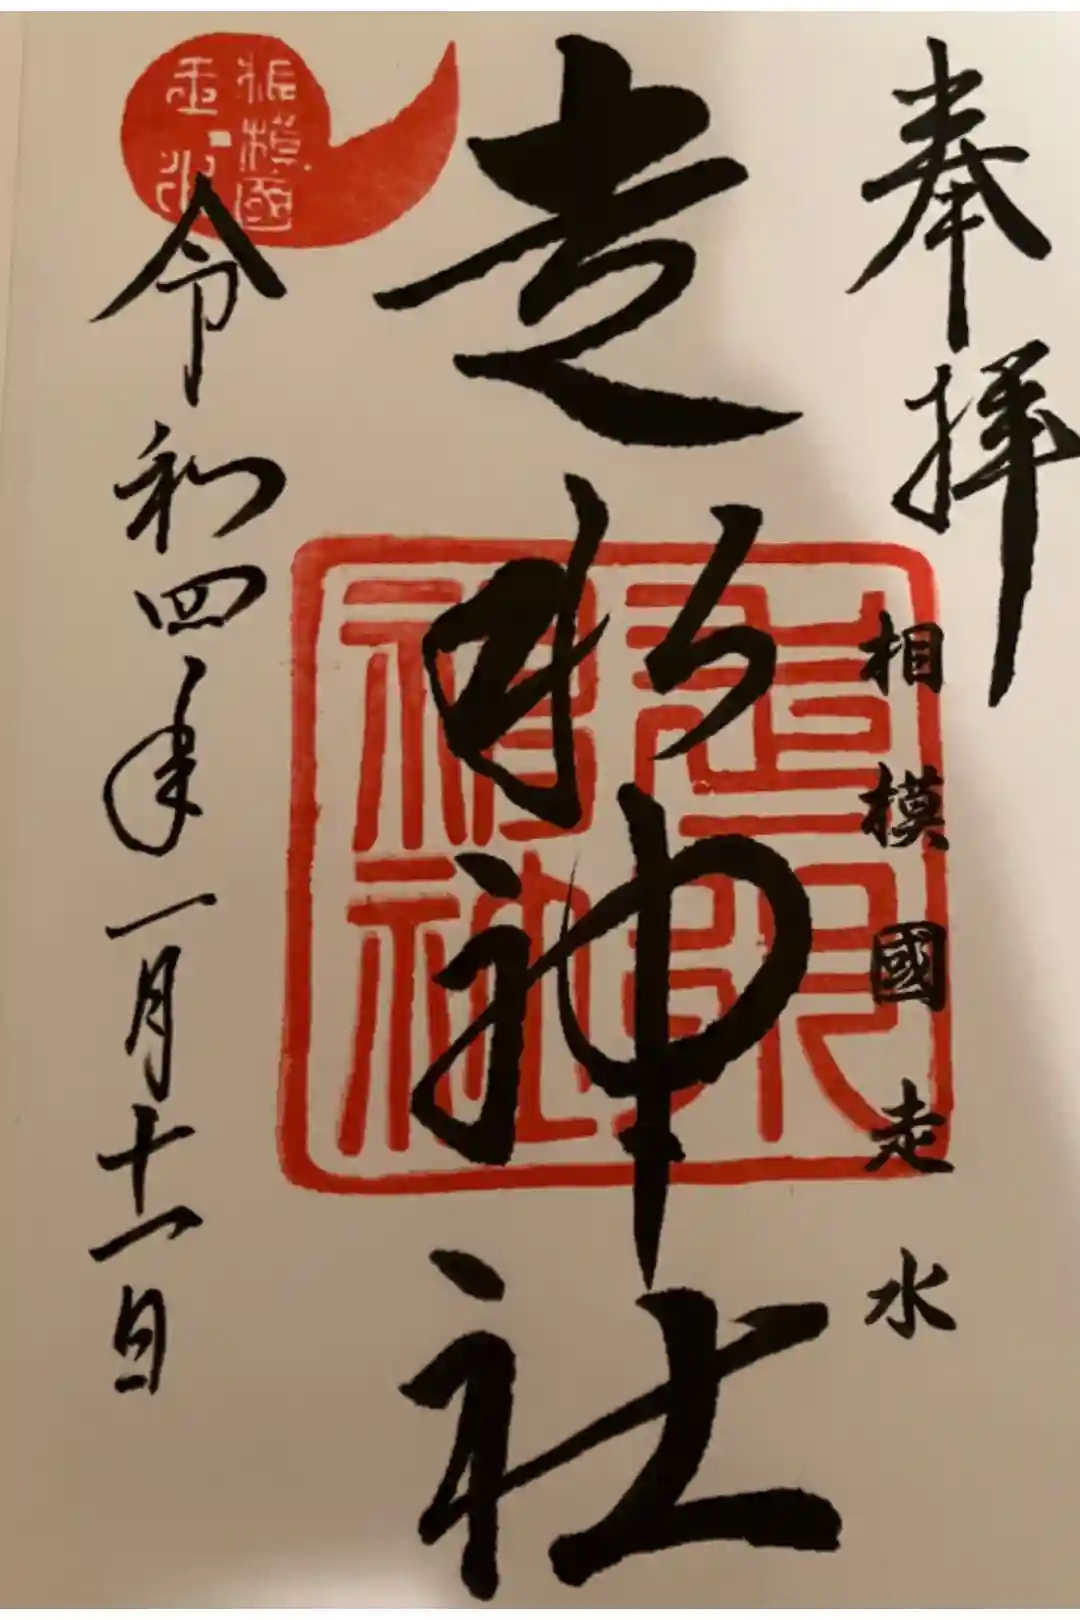 奉拝
相模國走水
走水神社
令和四年一月十一日
相模國
走水
走水
神社